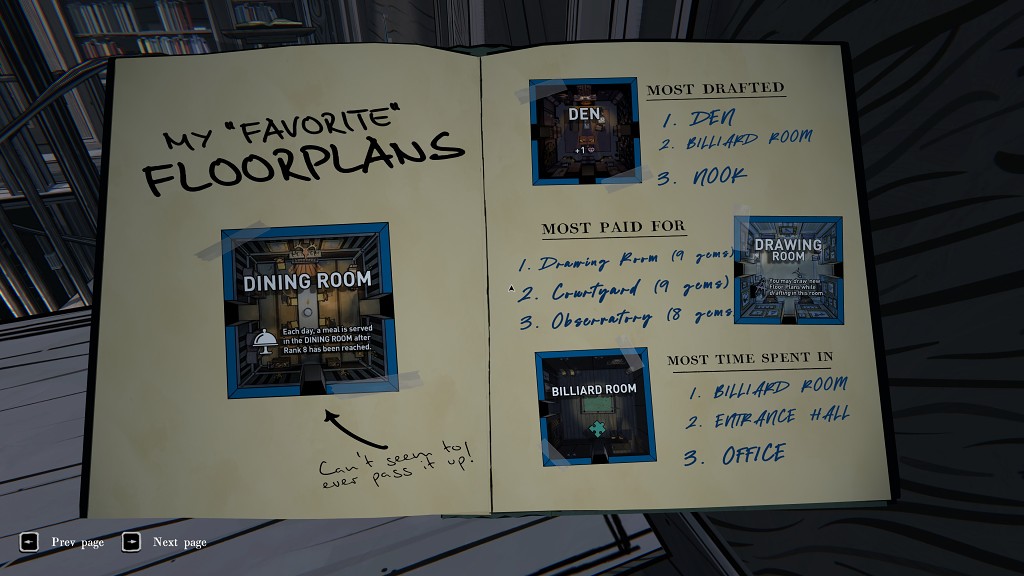 MY "FAVORITE"
FLOORPLANS
DINING ROOM
Each day, a meal is served
in the DINING ROOM after
Rank 8 has been reached.
Can't seem to
ever pass it up!
DEN
+1
MOST DRAFTED
1. DEN
2. BILLIARD ROOM
3. NOOK
MOST PAID FOR
1. Drawing Room (9 gems)
2. Courtyard (9 gems)
3. Observatory (8 gems
DRAWING
ROOM
You may draw new
Floor Plans while
drafting in this room
BILLIARD ROOM
MOST TIME SPENT IN
1. BILLIARD ROOM
2. ENTRANCE HALL
3. OFFICE
Prev page
Next page